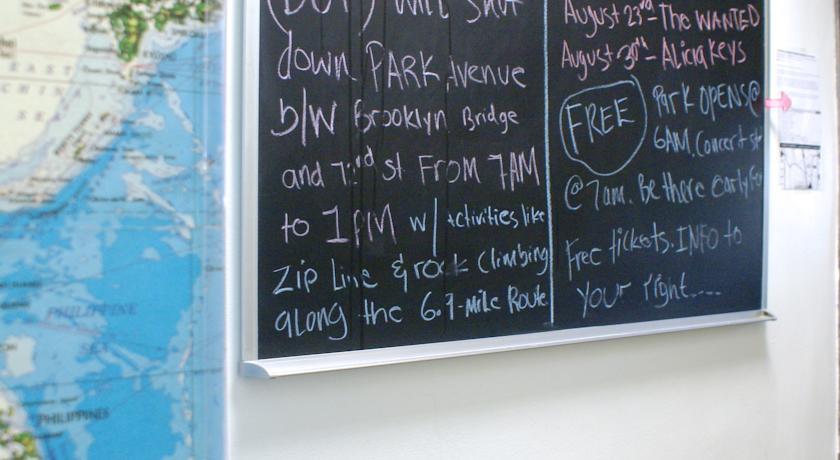 (DOT) will shut
down PARK Avenue
b/w Brooklyn Bridge
and 72nd st FROM 7AM
to 1PM w/ activities like
zip Line & rock climbing
along the 6.9-mile Route
August 23rd - The WANTED
August 30th - Alicia Keys
FREE
Park OPENS @
6AM. Concert
@ 7am. Be there early
Free tickets. INFO to
your right....
EAST
CHINA
SEA
PHILIPPINE
SEA
PHILIPPINES